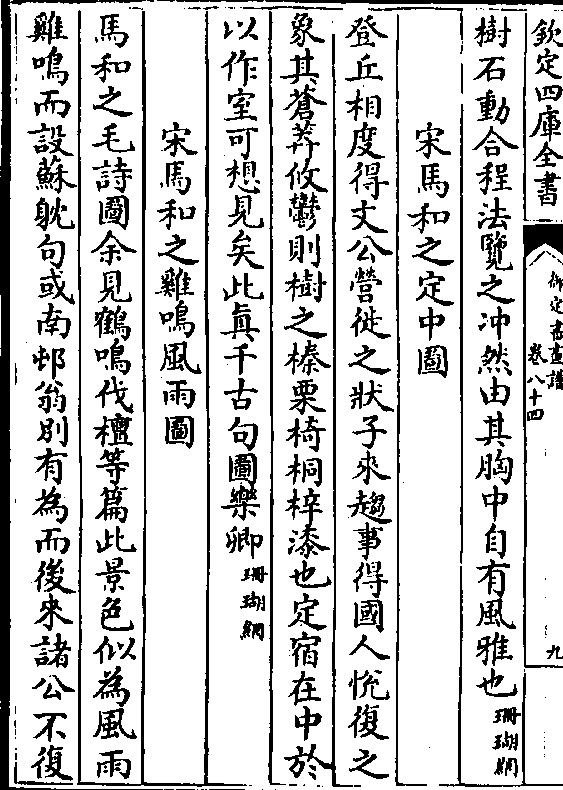 欽定四庫全書
御定書畫譜
卷八十四
九
樹石動合程法覽之冲然由其胸中自有風雅也珊瑚網
宋馬和之定中圖
登丘相度得文公營徙之狀子來趨事得國人悅復之
象其蒼莽攸鬱則樹之榛栗椅桐梓漆也定宿在中於
以作室可想見矣此真千古句圖樂卿珊瑚網
宋馬和之雞鳴風雨圖
馬和之毛詩圖余見鶴鳴伐檀等篇此景色似為風雨
雞鳴而設蘇躭句或南邨翁別有為而後來諸公不復